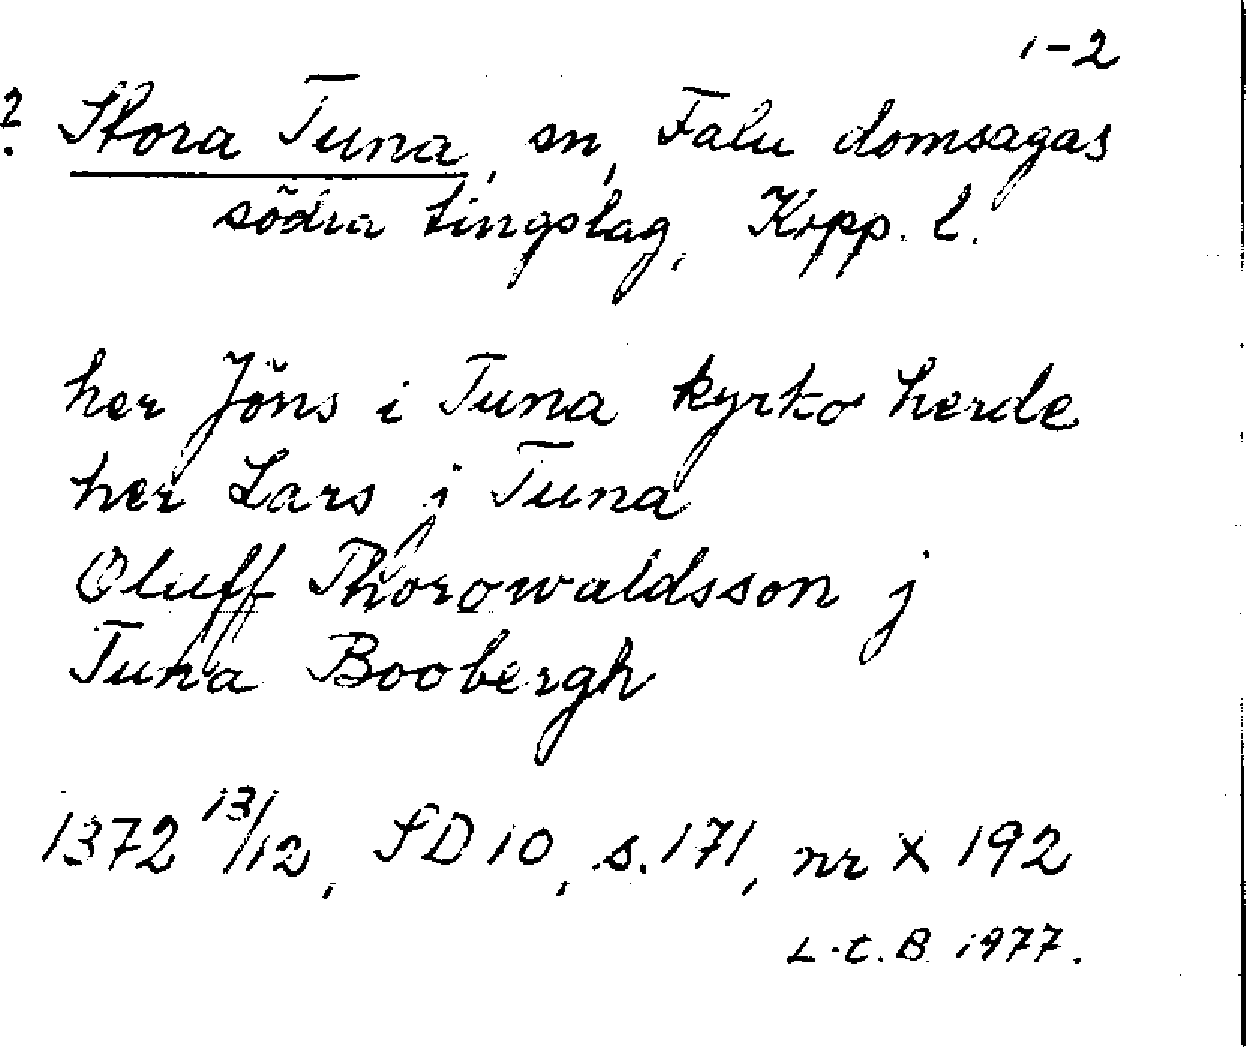 1-2
? Stora Tuna, sn, Falu domsagas
södra tingslag, Kopp. l.
her Jöns i Tuna kyrko herde
her Lars j Tuna
Oluff Thorowaldsson j
Tuna Boobergh
1372 13/12, SD 10, s. 171, nr X 192
L.C.B. 1977.